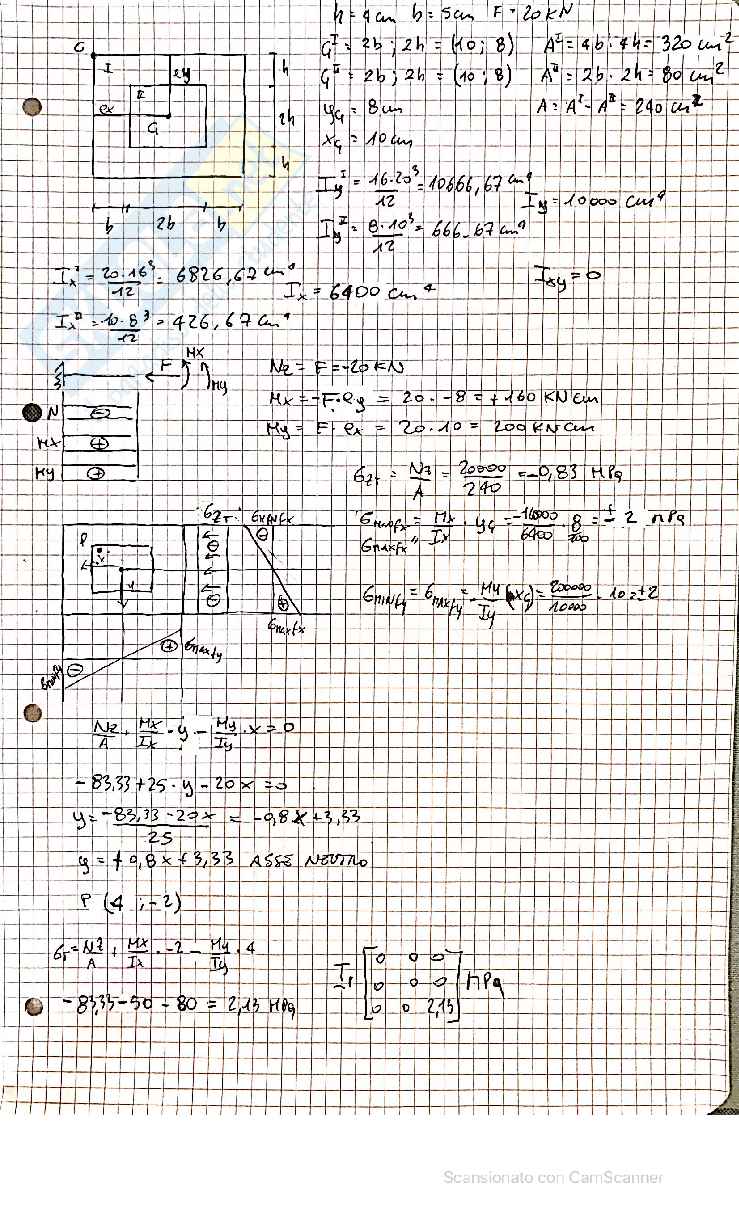 h = 4 cm b = 5 cm F = 20 KN
G^I = 2b ; 2h = (10 ; 8) A^I = 4b · 4h = 320 cm²
G^II = 2b ; 2h = (10 ; 8) A^II = 2b · 2h = 80 cm²
y_G = 8 cm A = A^I - A^II = 240 cm²
x_G = 10 cm
G I ey h
II ex 2h
G h
b 2b b
I_y^I = 16·20³/12 = 10666,67 cm⁴
I_y = 10000 cm⁴
I_y^II = 8·10³/12 = 666,67 cm⁴
I_x^I = 20·16³/12 = 6826,67 cm⁴
I_x = 6400 cm⁴ I_xy = 0
I_x^II = 10·8³/12 = 426,67 cm⁴
F MX MY
N ⊖
MX ⊕
MY ⊕
Nz = F = -20 KN
Mx = -F·ey = 20 · -8 = +160 KN cm
My = F · ex = 20 · 10 = 200 KN cm
σ_zT = Nz/A = 20000/240 = -0,83 MPa
σ_minfx = Mx/Ix · y_G = -16000/6400 · 8/100 = ± 2 MPa
σ_maxfx
σ_minfy = σ_maxfy = - My/Iy (x_G) = 200000/10000 · 10 = ±2
P σ_zT σ_minfx
⊖ ⊖ ⊖ ⊕
σ_maxfx
⊖ ⊕ σ_maxfy
σ_minfy
Nz/A + Mx/Ix · y - My/Iy · x = 0
-83,33 + 25 · y - 20x = 0
y = -83,33 - 20x / 25 = -0,8x + 3,33
y = +0,8x + 3,33 ASSE NEUTRO
P (4 ; -2)
σ_T = Nz/A + Mx/Ix · -2 - My/Iy · 4
-83,33 - 50 - 80 = 2,13 MPa
T_1 [0 0 0
0 0 0
0 0 2,13] MPa
Scansionato con CamScanner